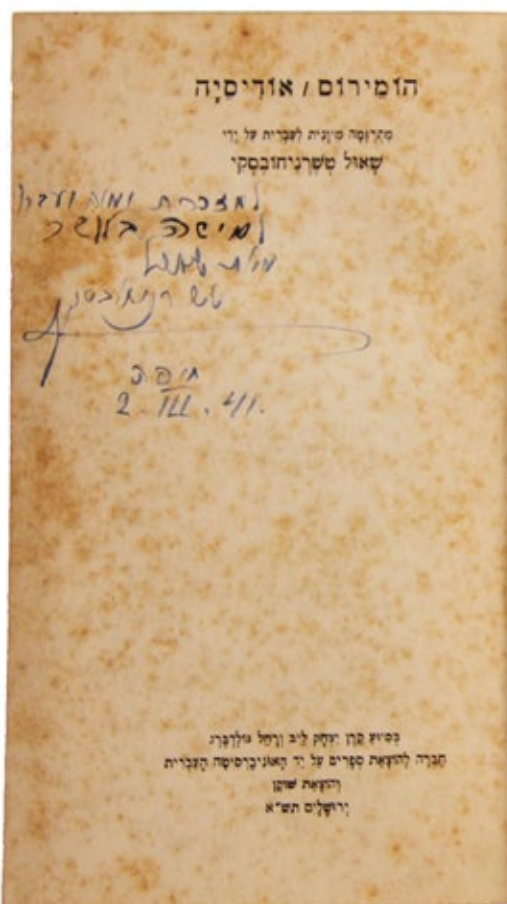 הוֹמֵירוֹס / אוֹדִיסֵיָה
מְתֻרְגָּמָה מִיְּוָנִית לְעִבְרִית עַל יְדֵי
שָׁאוּל טְשֶׁרְנִיחוֹבְסְקִי
למזכרת
מאת שאול
טשרניחובסקי
חיפה
2. III. 41.
בְּסִיּוּעַ קֶרֶן יִצְחָק לֵיב וְרָחֵל גּוֹלְדְבֶּרְג
חֶבְרָה לְהוֹצָאַת סְפָרִים עַל יַד הָאוּנִיבֶרְסִיטָה הָעִבְרִית
וְהוֹצָאַת שׁוֹקֶן
יְרוּשָׁלַיִם תש״א